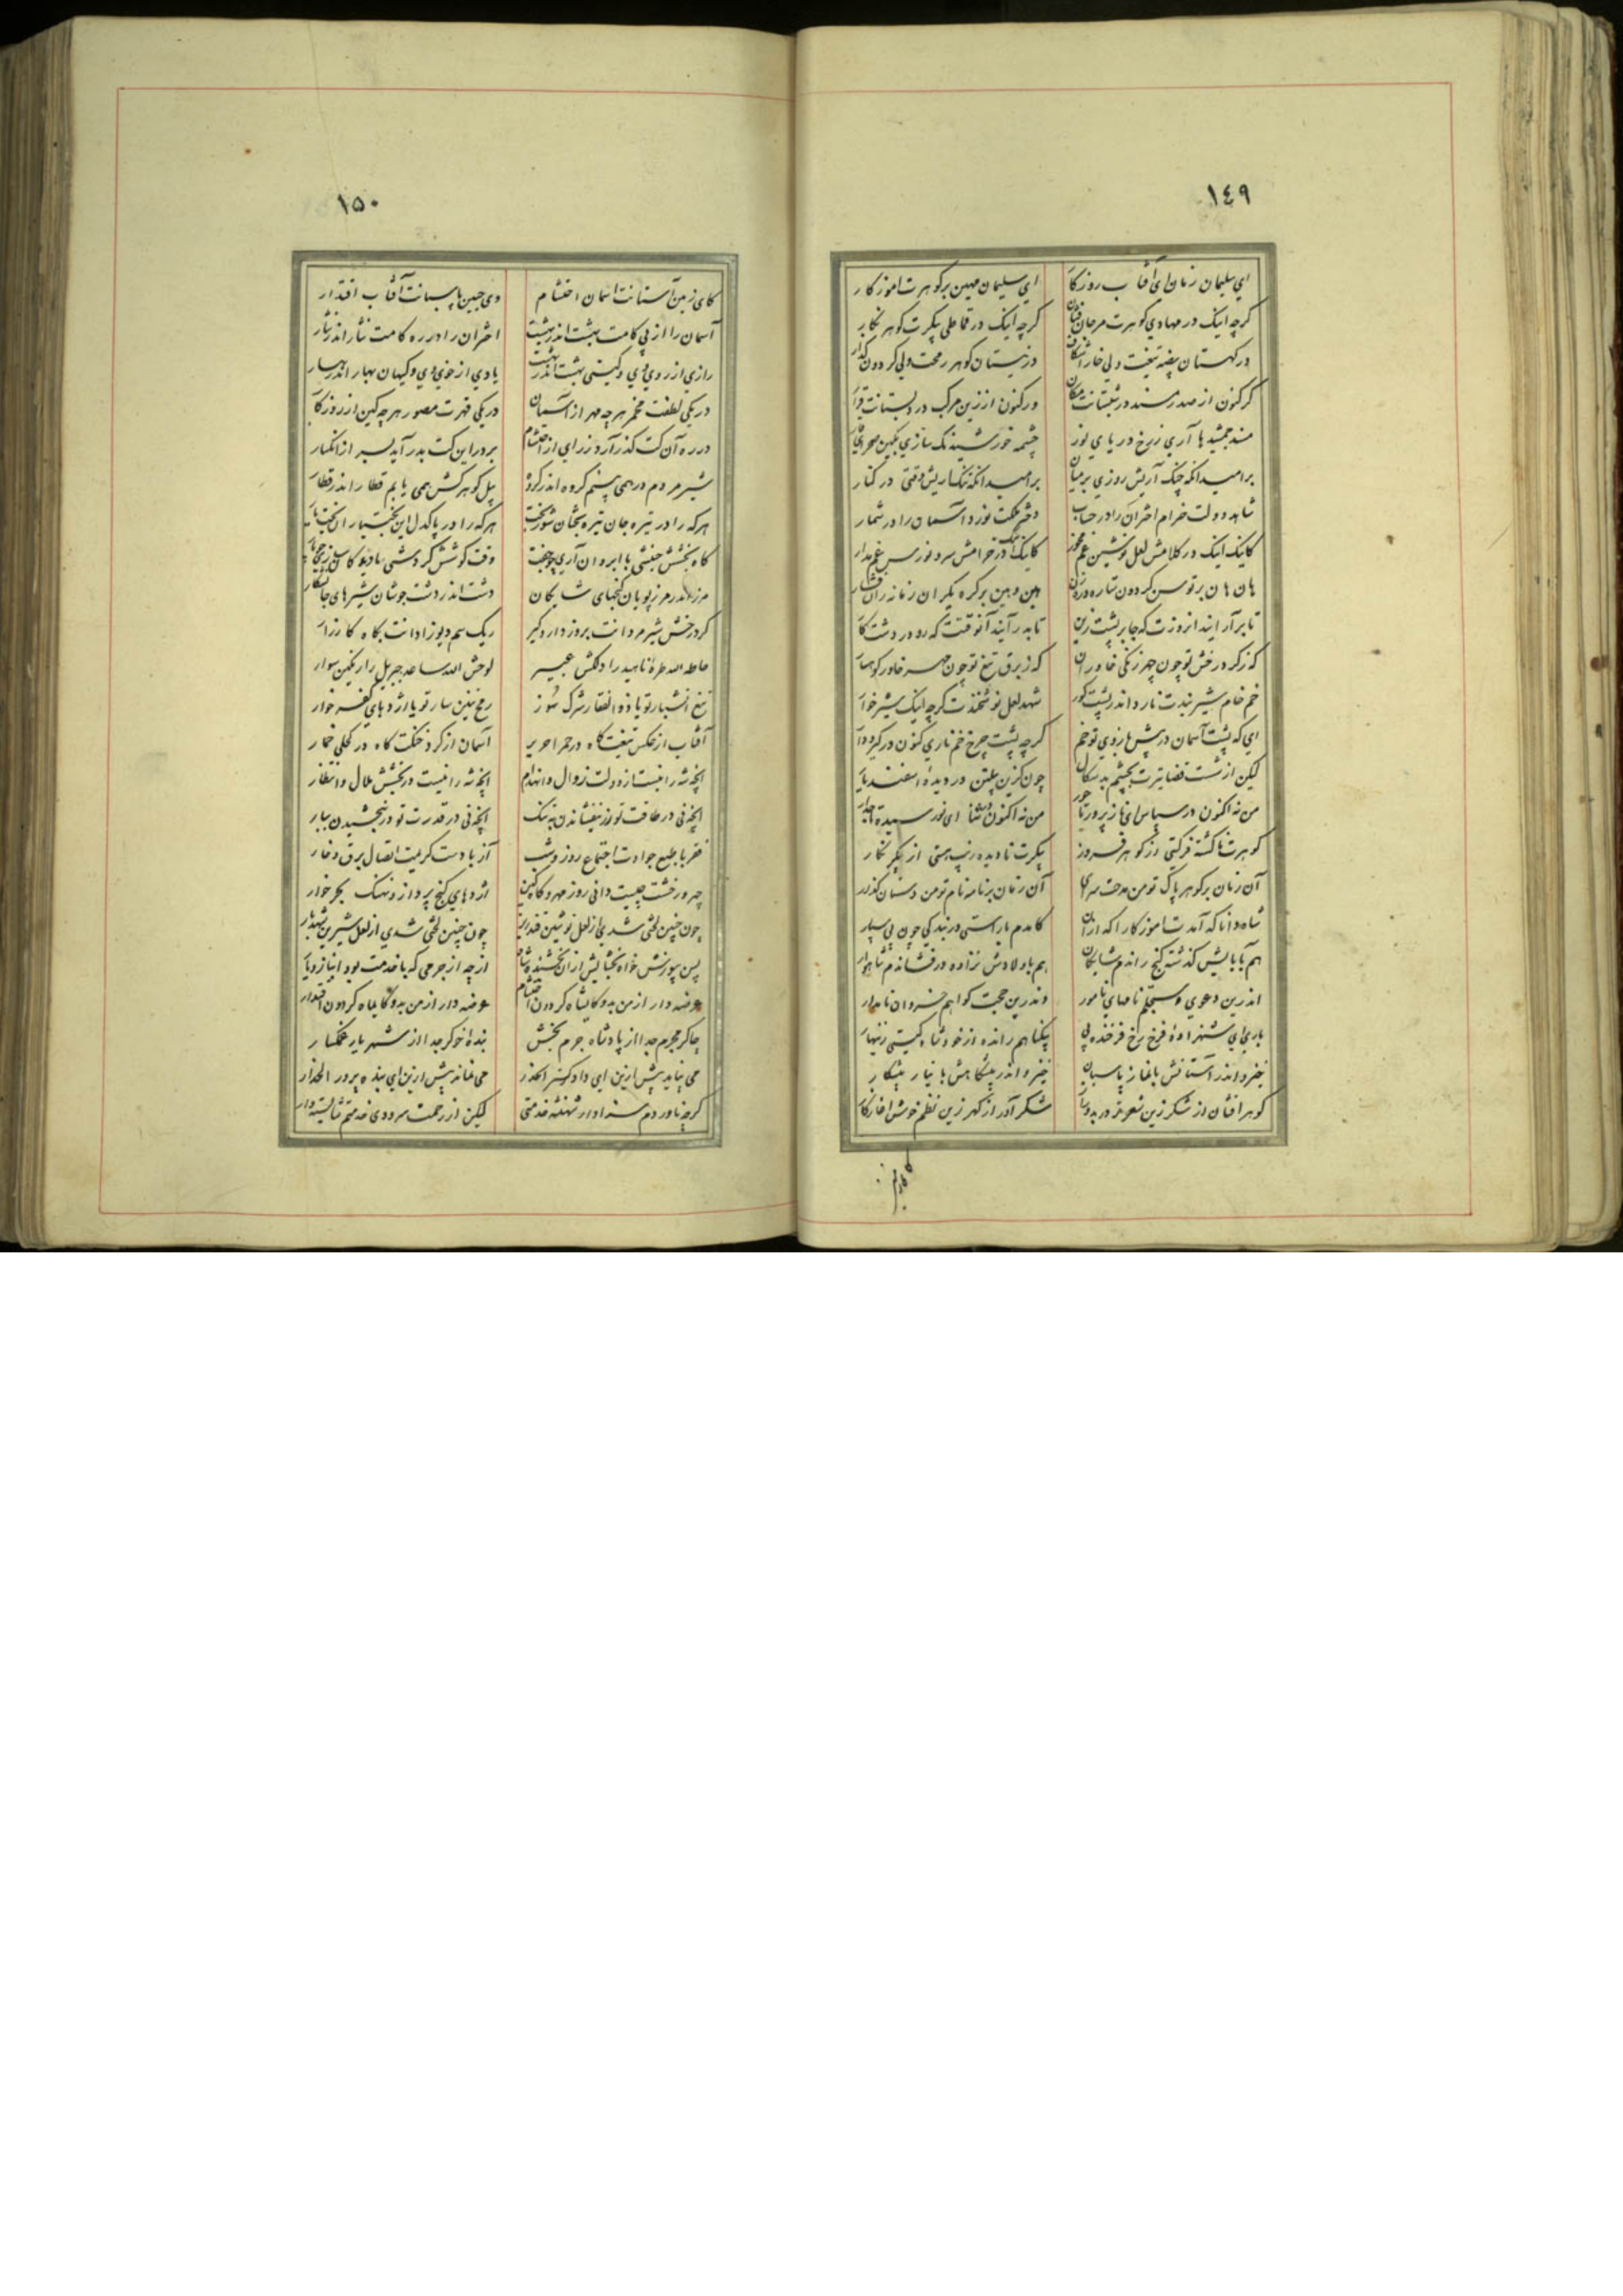 ١٤٩
ای سلیمان زمان ای آفتاب روزکار ای سلیمان مهین بر کوهرت اموزکار
کرچه اینک در مهادی کوهرت مرجان فشان کرچه اینک در قماطی پیکرت کوهر نکار
در کهستان بیضه تیغت ولی خارا شکاف در نیستان کوهر رمحت ولی کردون کذار
کر کنون از صدر مسند در شبستانت مکان ور کنون از زین مرکب در دبستانت قرار
مسند جمشید ها آری زرخ دریای نور چشمه خورشید نک سازی
بر امید انکه چنک آریش روزی بر میان بر امید انکه تنک اریش وقتی در کنار
شاهد دولت خرام اختران را در حساب دختر نوزد آسمان را در شمار
کاینک اینک در کلامش لعل نوشین کاینک اینک در خرامش سرو نورس
هان هان بر توسن کردون ستاره هین و هین بر کره یکران زمانه
تا بر آرایند از وقتت که جا بر پشت زین تا بدرآیند آنوقتت که رو در دشت کار
که زکرد رخش تو چون چهر زنکی خاوران که زبرق تیغ تو چون مهر خاور کوهسار
خم خام شیر بندت نارد اندر پشت کور شهد لعل نوشخندت کرچه اینک شیرخوار
ای که پشت آسمان در پیش بازوی تو خم کرچه پشت چرخ خم ناری کنون در
لیکن از شست قضا تیرت بچشم بدسکال چون کزین پیلتن در دیدهٔ اسفندیار
من نه اکنون در سپاس ای من نه اکنون در ثنا ای نور سیده
کوهرت ناکشته فرکتی در کوهر فروز پیکرت نادیده زیب هستی از پیکر نکار
آن زمان بر کوهر پاک تو من مدحت سرای آن زمان بر نامه نام تو من دستان کذار
شاه دانا که آمدت اموزکار اکه از آن کامدم باراستی در بندکی چون پی سپار
هم بآبایش کذشته کنج راندم شایکان هم باولادش نزاده در فشاندم شاهوار
اندرین دعوی مسجلم نامهای نامور وندرین حجت کواهم خسروان نامدار
باری ای شهزادهٔ فرخ رخ فرخنده پی بیکناهم رانده از خود شاه کیتی زینهار
خیز و اندر آستانش با نماز پاسبان خیز و اندر پیشکاهش با نیاز پیشکار
کوهر افشان از شکر زین شعر شکر آور از کهر زین نظم خوش
١٥٠
کای زمین آستانت آسمان احتشام وی جبین پاسبانت آفتاب اقتدار
آسمان را از پی کامت بهشت اندر بهشت اختران را در ره کامت نثار اندر نثار
رازی از روی وی و کیتی بهشت اندر بهشت یادی از خوی وی و کیهان بهار اندر بهار
در یکی لطفت مخمر هر چه مهر از آسمان در یکی قهرت مصور هر چه کین از روزکار
در ره آن کت کذر آرد زرای از احتشام بر در این کت بدر آید بسر از انکسار
شیر مردم در همی بینم کروه اندر کروه پیل کوهرکش همی یابم قطار اندر قطار
هر که را در تیره جان تیره بختان شور بخت هر که را در پاکدل این بختیاران بختیار
کاه بخشش جنبشی با ابروان آری چو جفت وقت کوشش کردشی بادیده کان سازی چو یار
مرز اندر مرز پویان کنجهای شایکان دشت اندر دشت جوشان شیرهای جانشکار
کرد رخش شیر مردانت بروز دار و کیر ریک سم دیو زادانت بکاه کارزار
حاطه الله طرهٔ ناهید را دلکش عبیر لوحش الله ساعد جبریل را رنکین سوار
تیغ آتشبار تو یا ذوالفقار شرک سوز رمح تنین سار تو یا اژدهای کفر خوار
آفتاب از عکس تیغت کاه در حمرا حریر آسمان از کرد خنکت کاه در کحلی خمار
آنچه شه را نیست از دولت زوال و انهدام آنچه شه را نیست در بخشش ملال و انتظار
آنچه نی در طاقت تو زر نیفشاندن به تنک آنچه نی در قدرت تو در نبخشیدن ببار
فقر با طبع جوادت اجتماع روز و شب آز با دست کریمت اتصال برق و خار
چهر و رخشت چیست دانی روز مهر و کاه کین اژدهای کنج پرداز و نهنک بحر خوار
چون چنین لختی شدی از لعل نوشین قندریز چون چنین لختی شدی از لعل شیرین شهدبار
پس بپوزش خواه بخشایش از آن بخشنده شاه از چه از جرمی که با خدمت بود
عرضه دار از من بدو کایشاه کردون احتشام عرضه دار از من بدو کایماه کردون اقتدار
چاکر مجرم جدا از پادشاه جرم بخش بندهٔ خوکر جدا از شهریار غمکسار
می نپاید پیش ازین ای دادکستر الحذر می نماند پیش ازین ای بنده پرور الحذار
کرچه ناوردم سزاوار شهنشه خدمتی لیکن از رحمت سرودی خدمتم شایسته وار